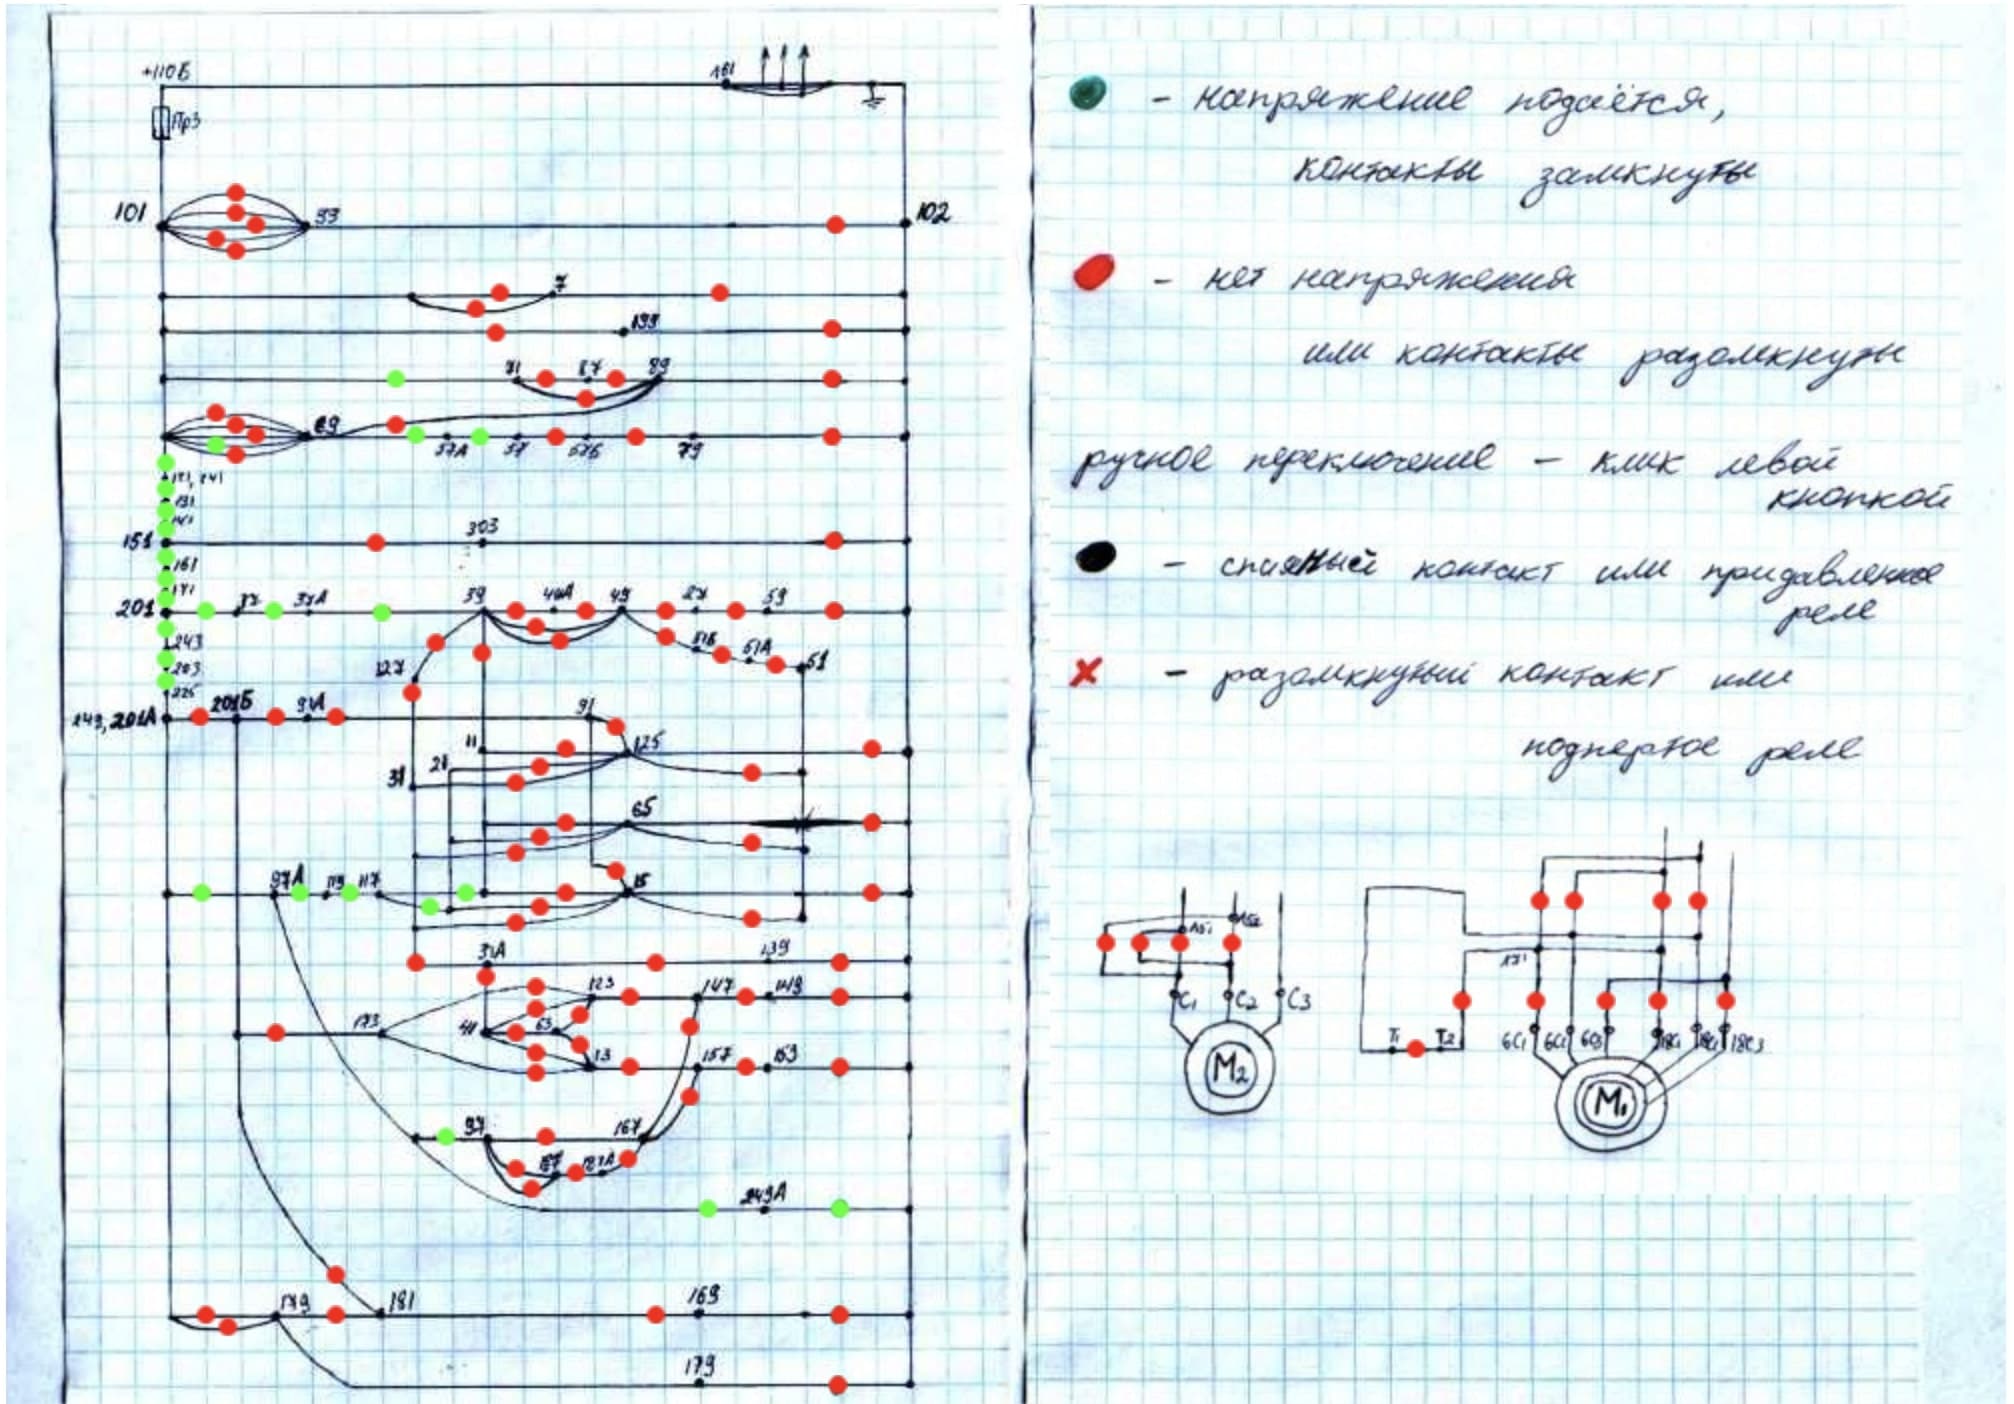 +110Б
161
Пр3
101
33
102
7
133
71
87
89
69
57А
57
57Б
79
131
151
303
161
201
37
37А
39
49
27
59
243
203
225
127
51Б
51А
51
249, 201А
201Б
91А
91
11
125
21
31
65
97А
119
117
15
31А
139
123
147
149
173
41
63
13
157
153
97
167
187
187А
249А
179
181
169
179
- напряжение подаётся,
контакты замкнуты
- нет напряжения
или контакты разомкнуты
ручное переключение - клик левой
кнопкой
- спаянный контакт или придавленное
реле
- разомкнутый контакт или
подпертое реле
С1
С2
С3
М2
Т1
Т2
6С1
6С3
18С3
М1